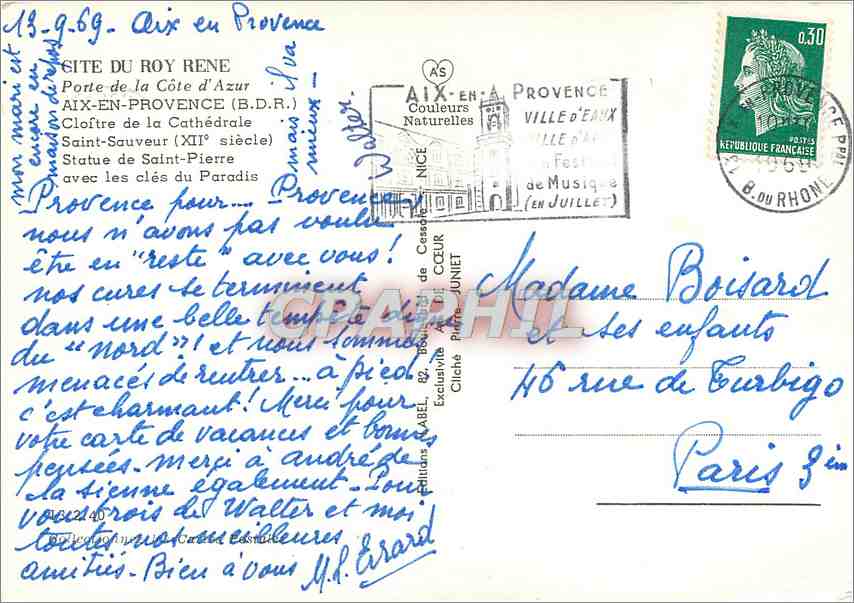 13-9-69- Aix en Provence
CITE DU ROY RENE
Porte de la Côte d'Azur
AIX-EN-PROVENCE (B.D.R.)
Cloître de la Cathédrale
Saint-Sauveur (XIIe siècle)
Statue de Saint-Pierre
avec les clés du Paradis
Provence pour.... Provence,
nous n'avons pas voulu
être en "reste" avec vous!
nos cures se terminent
dans une belle tempête digne
du "Nord"! et nous sommes
menacés de rentrer... à pied
c'est charmant! Merci pour
votre carte de vacances et bonnes
pensées. merci à André de
la sienne également. Pour
vous trois de Walter et moi
toutes nos meilleures
amitiés. Bien à vous M.L. Evrard
mon mari est
encore en
mais il va
mieux -
Walter.
AS
Couleurs
Naturelles
Editions LABEL, 82, Boulevard de Cessole - NICE
Exclusivité AS DE CŒUR
Cliché Pierre JUNIET
AIX-EN-PROVENCE
VILLE D'EAUX
VILLE D'ART
Festival
de Musique
(EN JUILLET)
0,30
POSTES
REPUBLIQUE FRANÇAISE
AIX EN PROVENCE PPAL
1969
B. DU RHONE
Madame Boisard
et ses enfants
46 rue de Turbigo
Paris 3ème
CPAPHIL